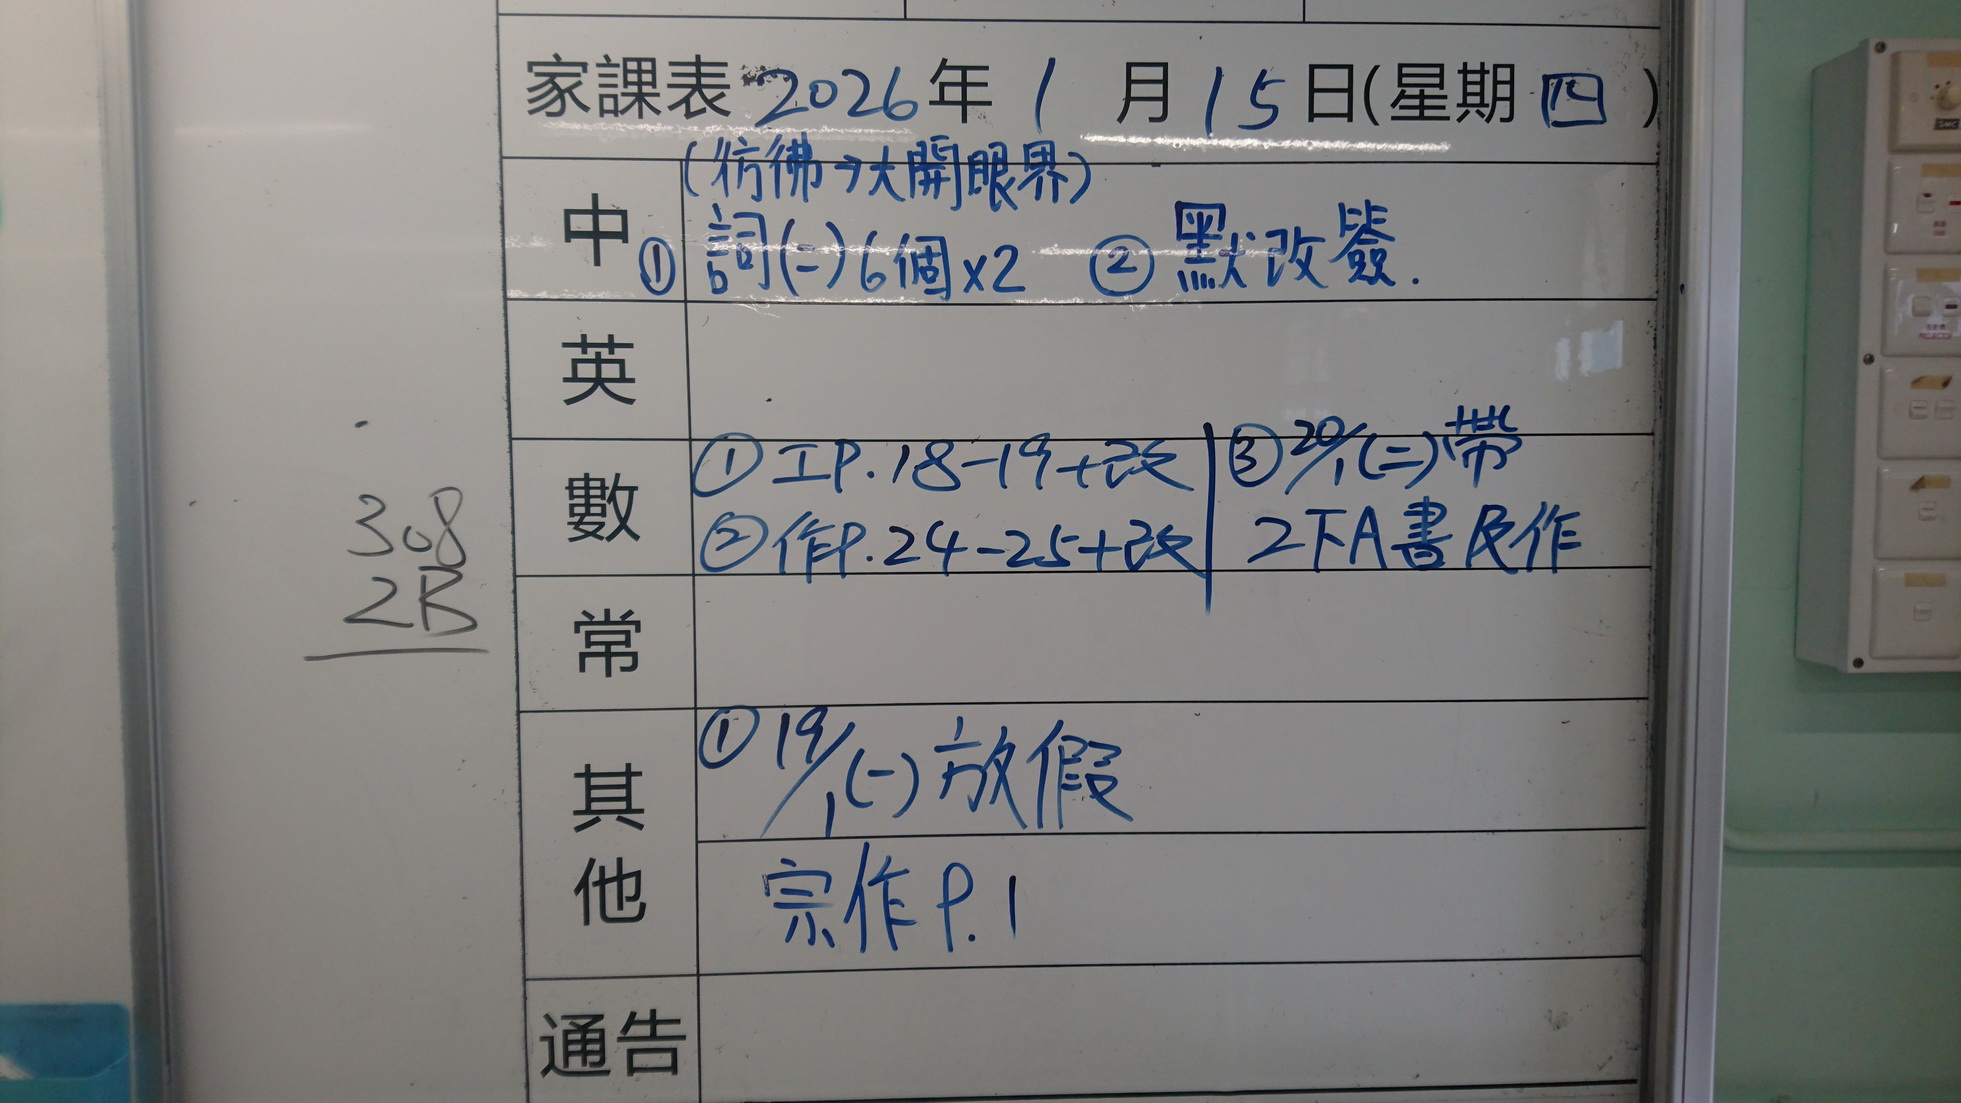 家課表 2026年 1 月 15日(星期 四 )
(彷彿→大開眼界)
中 ① 詞(二)6個x2 ② 默改簽.
英
數
① 工P.18-19+改
② 作P.24-25+改
③ 20/1(二)帶
2下A書及作
308
2B
常
其他
① 19/1(一)放假
宗作P.1
通告